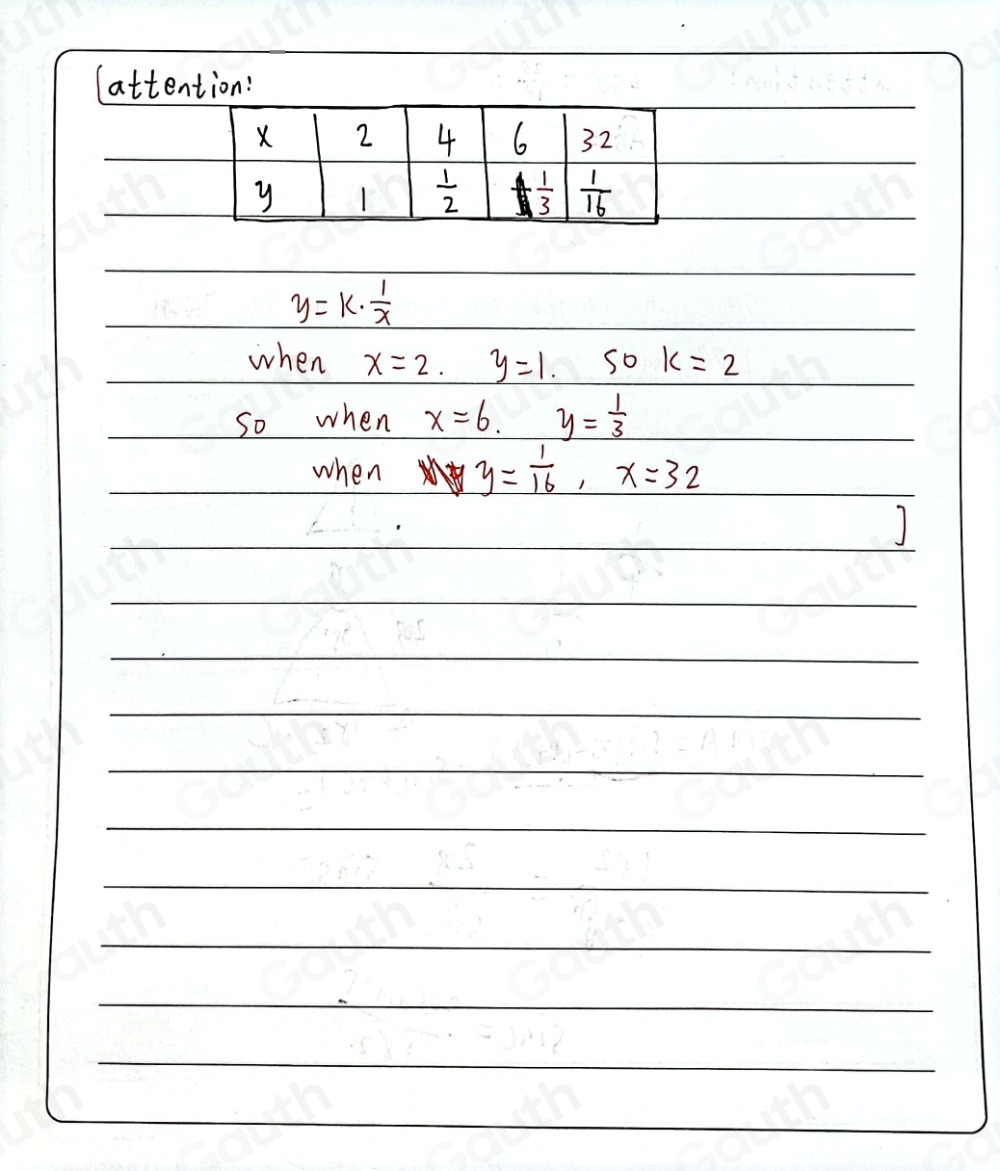 [attention:
x 2 4 6 32
y 1 1/2 1/3 1/16
y = k · 1/x
when x = 2. y = 1. so k = 2
so when x = 6. y = 1/3
when y = 1/16, x = 32
]